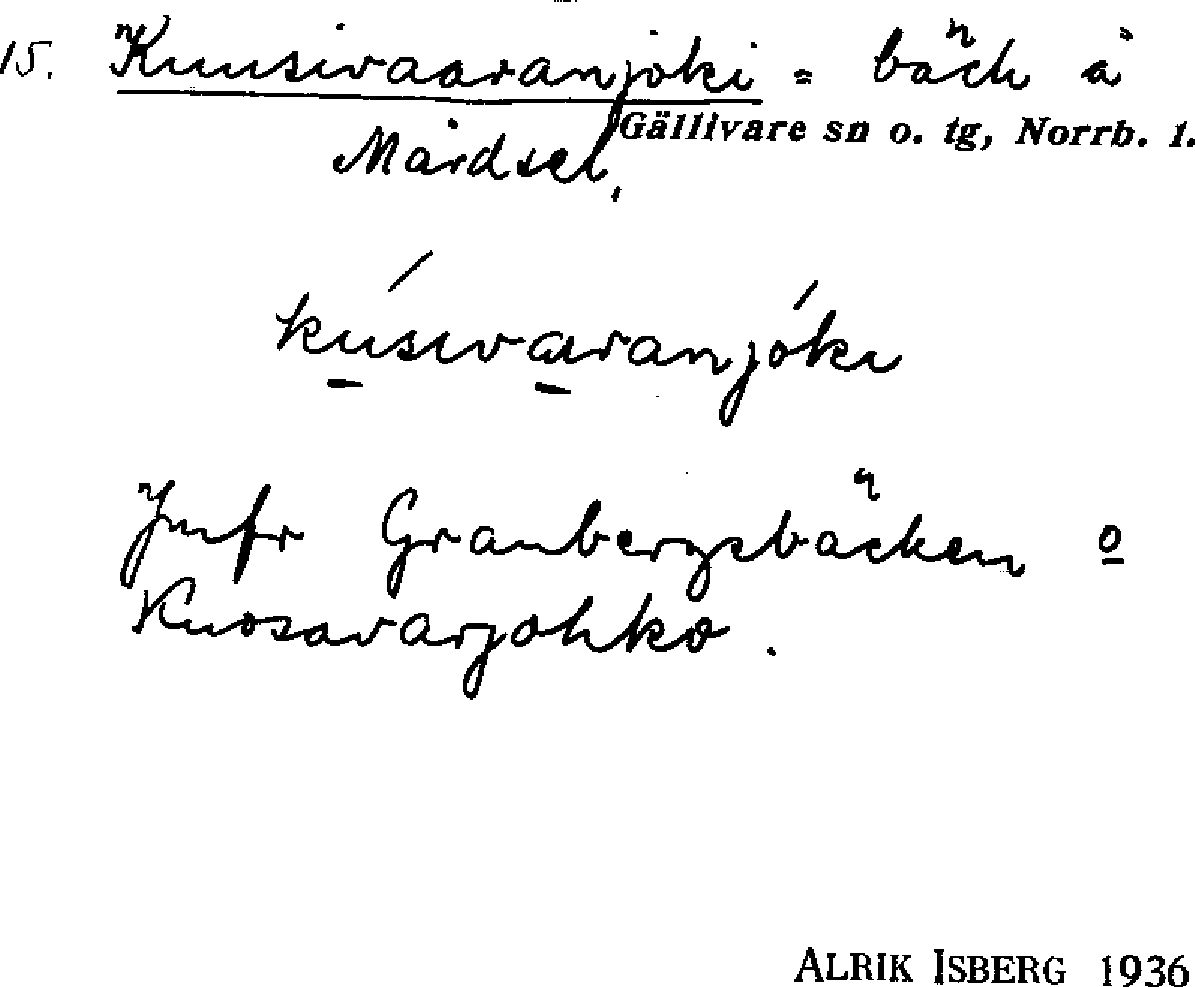 15. Kuusivaaranjoki = bäck å
Gällivare sn o. tg, Norrb. l.
Mårdsel.
kúsivaranjóki
Jmfr Granbergsbäcken o
Kuosavarjohko.
ALRIK ISBERG 1936